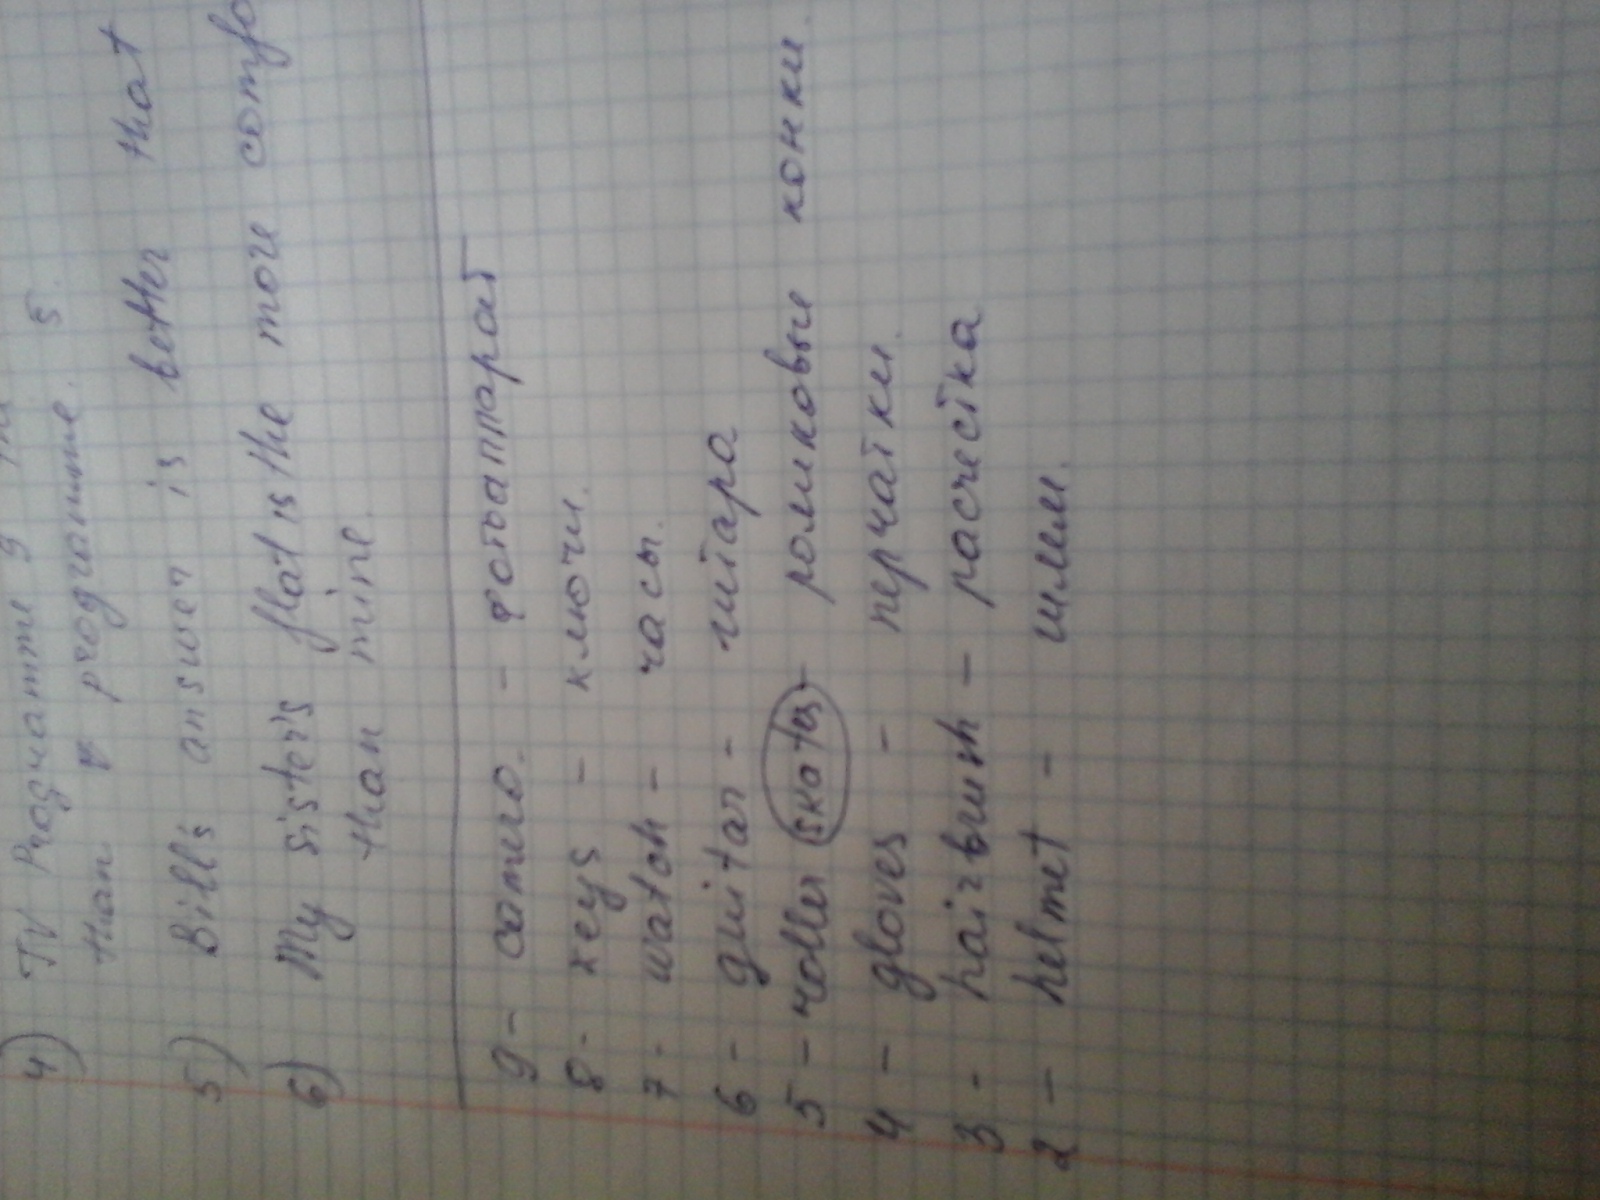 4) TV Programme 9
than programme 5.
5) Bill's answer is better that
6) My sister's flat is the more comfo
than mine.
9 - camera - фотоаппарат
8 - keys - ключи.
7 - watch - часы.
6 - guitar - гитара
5 - roller skates - роликовые коньки.
4 - gloves - перчатки.
3 - hairbrush - расчестка
2 - helmet - шлем.